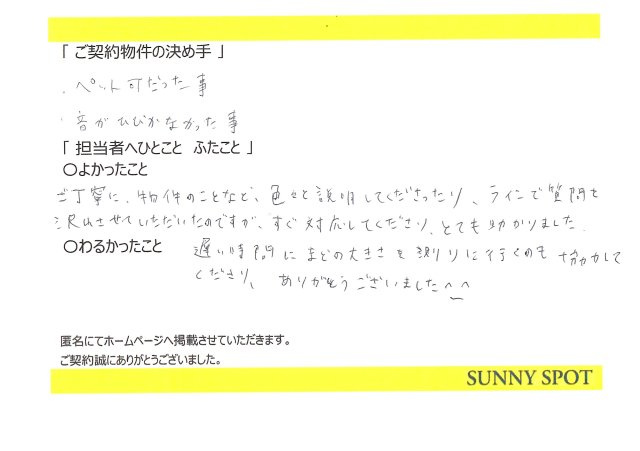 「 ご契約物件の決め手 」
・ペット可だった事
・音がひびかなかった事
「 担当者へひとこと ふたこと 」
〇よかったこと
ご丁寧に、物件のことなど、色々と説明してくださったり、ラインで質問も
沢山させていただいたのですが、すぐ対応してくださり、とても助かりました。
〇わるかったこと
遅い時間にまどの大きさを測りに行くのも協力して
くださり、ありがとうございました^^
匿名にてホームページへ掲載させていただきます。
ご契約誠にありがとうございました。
SUNNY SPOT